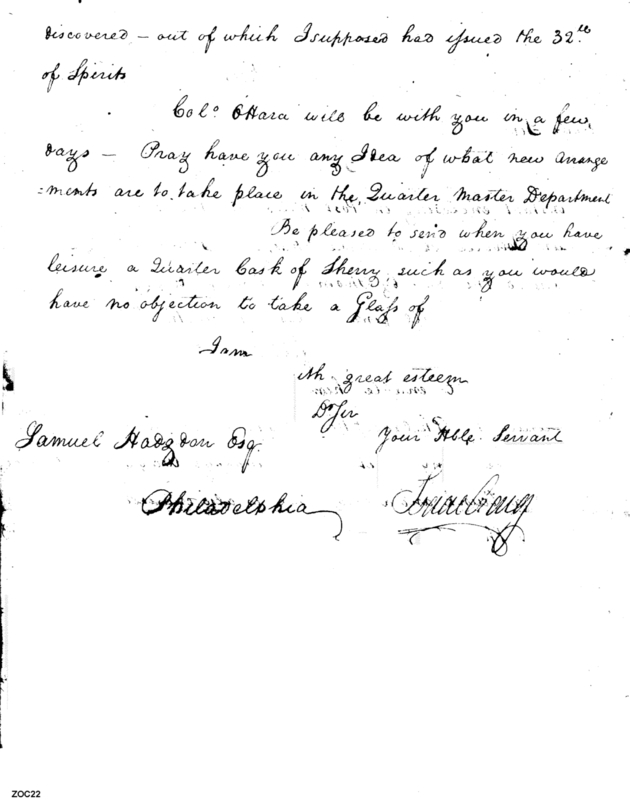 discovered – out of which I supposed had issued the 32.th
of Spirits
Col.o OHara will be with you in a few
days – Pray have you any Idea of what new arrange
=ments are to take place in the Quarter Master Department
Be pleased to send when you have
leisure a Quarter Cask of Sherry such as you would
have no objection to take a Glass of
I am
ith great esteem
Dr Sir
Your Hble Servant
Samuel Hodgdon Esq.
Philadelphia
Isaac Craig
ZOC22